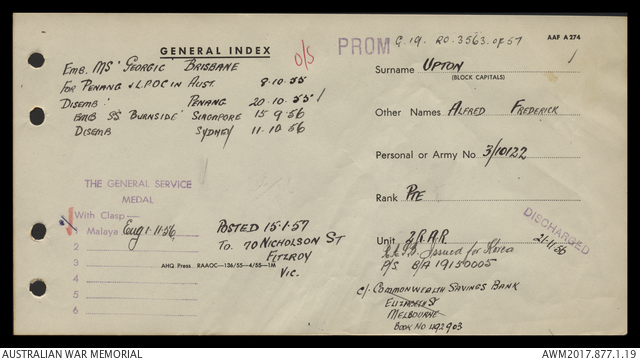 GENERAL INDEX
O/S
EMB. MS "GEORGIC" BRISBANE
FOR PENANG & L.P.O.C IN AUST. 8·10·55
DISEMB: PENANG 20·10·55
EMB SS "BURNSIDE" SINGAPORE 15·9·56
DISEMB SYDNEY 11·10·56
THE GENERAL SERVICE
MEDAL
With Clasp—
1 Malaya Eng 1·11·56
2
3
4
5
6
POSTED 15·1·57
TO. 70 NICHOLSON ST
FITZROY
VIC.
AHQ Press. RAAOC—136/55—4/55—1M
PROM G.19. RO.3563 of 57
AAF A 274
Surname UPTON
(BLOCK CAPITALS)
Other Names ALFRED FREDERICK
Personal or Army No. 3/10122
Rank PTE
Unit 2 R.A.R
DISCHARGED
21·11·56
Issued for Korea
P/S B/A 19150005
C/- COMMONWEALTH SAVINGS BANK
ELIZABETH ST
MELBOURNE
BOOK NO 492903
AUSTRALIAN WAR MEMORIAL
AWM2017.877.1.19